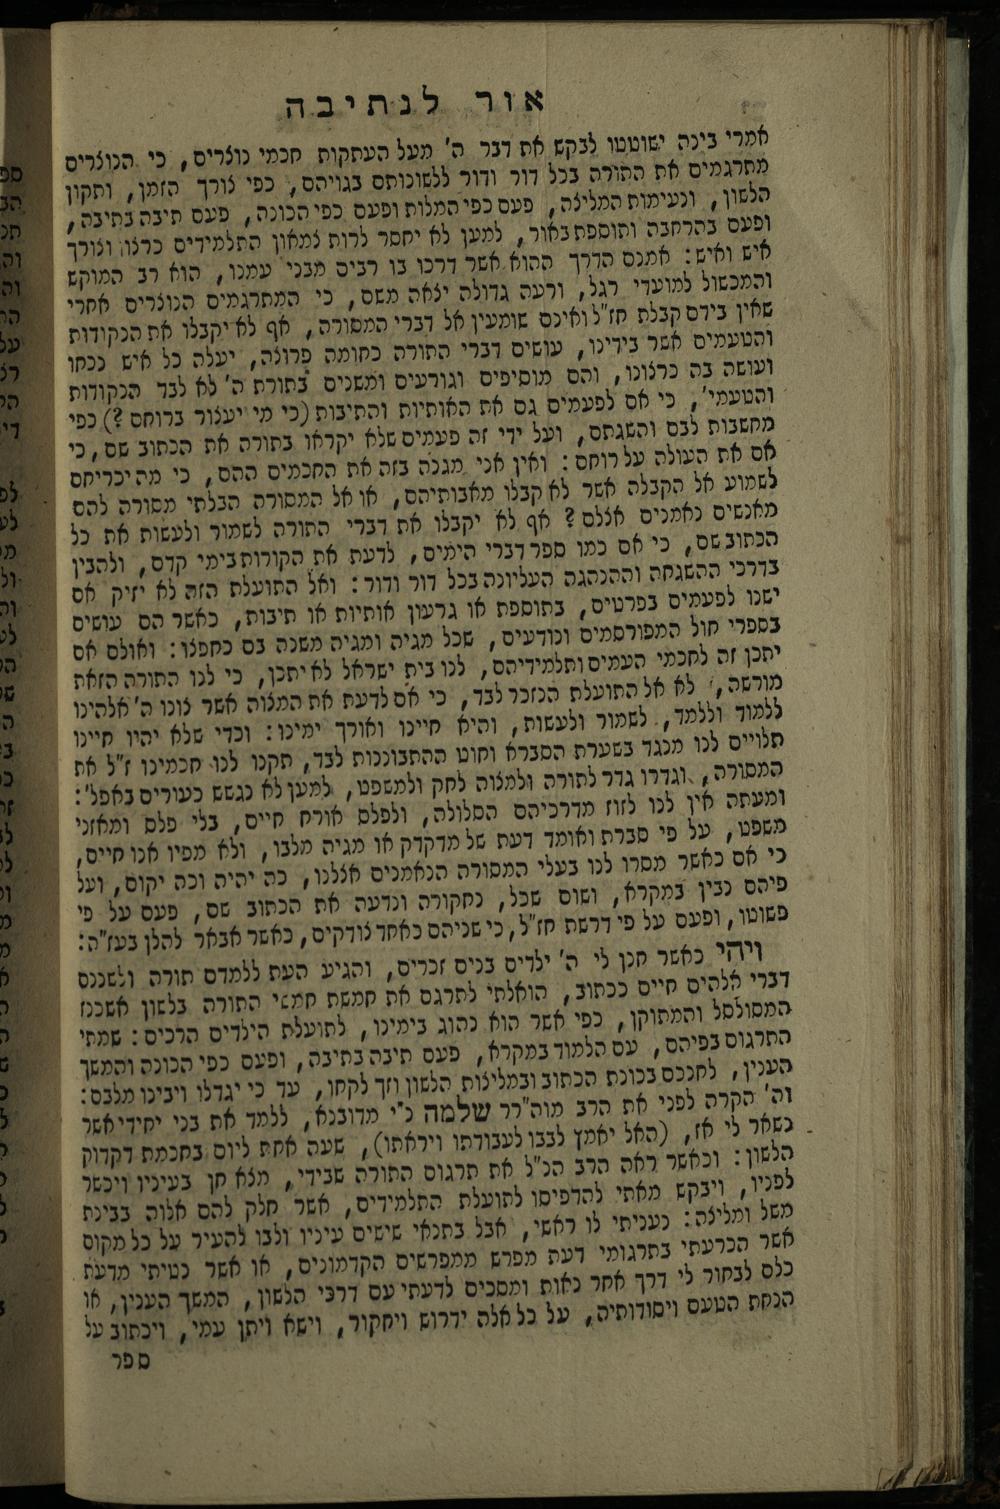 אור לנתיבה
אמרי בינה ישוטטו לבקש את דבר ה' מעל העתקות חכמי נוצרים, כי הנוצרים
מתרגמים את התורה בכל דור ודור ללשונותם בגויהם, כפי צורך הזמן, ותקון
הלשון, ונעימות המליצה, פעם כפי המלות ופעם כפי הכונה, פעם תיבה בתיבה,
ופעם בהרחבה ותוספת באור, למען לא יחסר לרות צמאון התלמידים כרצו' וצורך
איש ואיש: אמנם הדרך ההוא אשר דרכו בו רבים מבני עמנו, הוא רב המוקש
והמכשול למועדי רגל, ורעה גדולה יצאה משם, כי המתרגמים הנוצרים אחרי
שאין בידם קבלת חז"ל ואינם שומעין אל דברי המסורה, אף לא יקבלו את הנקודות
והטעמים אשר בידינו, עושים דברי התורה כחומה פרוצה, יעלה כל איש נכחו
ועושה בה כרצונו, והם מוסיפים וגורעים ומשנים בתורת ה' לא לבד הנקודות
והטעמי', כי אם לפעמים גם את האותיות והתיבות (כי מי יעצור ברוחם?) כפי
מחשבות לבם והשגתם, ועל ידי זה פעמים שלא יקראו בתורה את הכתוב שם, כי
אם את העולה על רוחם: ואין אני מגנה בזה את החכמים ההם, כי מה יכריחם
לשמוע אל הקבלה אשר לא קבלו מאבותיהם, או אל המסורה הבלתי מסורה להם
מאנשים נאמנים אצלם? אף לא יקבלו את דברי התורה לשמור ולעשות את כל
הכתוב שם, כי אם כמו ספר דברי הימים, לדעת את הקורות בימי קדם, ולהבין
בדרכי ההשגחה וההנהגה העליונה בכל דור ודור: ואל התועלת הזה לא יזיק אם
ישנו לפעמים בפרטים, בתוספת או גרעון אותיות או תיבות, כאשר הם עושים
בספרי חול המפורסמים ונודעים, שכל מגיה ומגיה משנה בם כחפצו: ואולם אם
יתכן זה לחכמי העמים ותלמידיהם, לנו בית ישראל לא יתכן, כי לנו התורה הזאת
מורשה, לא אל התועלת הנזכר לבד, כי אם לדעת את המצוה אשר צונו ה' אלהינו
ללמוד וללמד, לשמור ולעשות, והיא חיינו ואורך ימינו: וכדי שלא יהיו חיינו
תלויים לנו מנגד בשערת הסברא וחוט ההתבוננות לבד, תקנו לנו חכמינו ז"ל את
המסורה, וגדרו גדר לתורה ולמצוה לחק ולמשפט, למען לא נגשש כעורים באפל':
ומעתה אין לנו לזוז מדרכיהם הסלולה, ולפלס אורח חיים, בלי פלס ומאזני
משפט, על פי סברת ואומד דעת של מדקדק או מגיה מלבו, ולא מפיו אנו חיים,
כי אם כאשר מסרו לנו בעלי המסורה הנאמנים אצלנו, כה יהיה וכה יקום, ועל
פיהם נבין במקרא, ושום שכל, נחקורה ונדעה את הכתוב שם, פעם על פי
פשוטו, ופעם על פי דרשת חז"ל, כי שניהם כאחד צודקים, כאשר אבאר להלן בעז"ה:
ויהי כאשר חנן לי ה' ילדים בנים זכרים, והגיע העת ללמדם תורה ולשננם
דברי אלהים חיים ככתוב, הואלתי לתרגם את חמשת חמשי התורה בלשון אשכנז
המסולסל והמתוקן, כפי אשר הוא נהוג בימינו, לתועלת הילדים הרכים: שמתי
התרגום בפיהם, עם הלמוד במקרא, פעם תיבה בתיבה, ופעם כפי הכונה והמשך
הענין, לחנכם בכונת הכתוב ובמליצות הלשון וזך לקחו, עד כי יגדלו ויבינו מלבם:
וה' הקרה לפני את הרב מוה"רר שלמה נ"י מדובנא, ללמד את בני יחידי אשר
נשאר לי אז, (האל יאמץ לבבו לעבודתו ויראתו), שעה אחת ליום בחכמת דקדוק
הלשון: וכאשר ראה הרב הנ"ל את תרגום התורה שבידי, מצא חן בעיניו ויכשר
לפניו, ויבקש מאתי להדפיסו לתועלת התלמידים, אשר חלק להם אלוה בבינת
משל ומליצה: נעניתי לו ראשי, אבל בתנאי שישים עיניו ולבו להעיר על כל מקום
אשר הכרעתי בתרגומי דעת מפרש ממפרשים הקדמונים, או אשר נטיתי מדעת
כלם לבחור לי דרך אחר נאות ומסכים לדעתי עם דרכי הלשון, המשך הענין, או
הנחת הטעם ויסודותיה, על כל אלה ידרוש ויחקור, וישא ויתן עמי, ויכתוב על
ספר